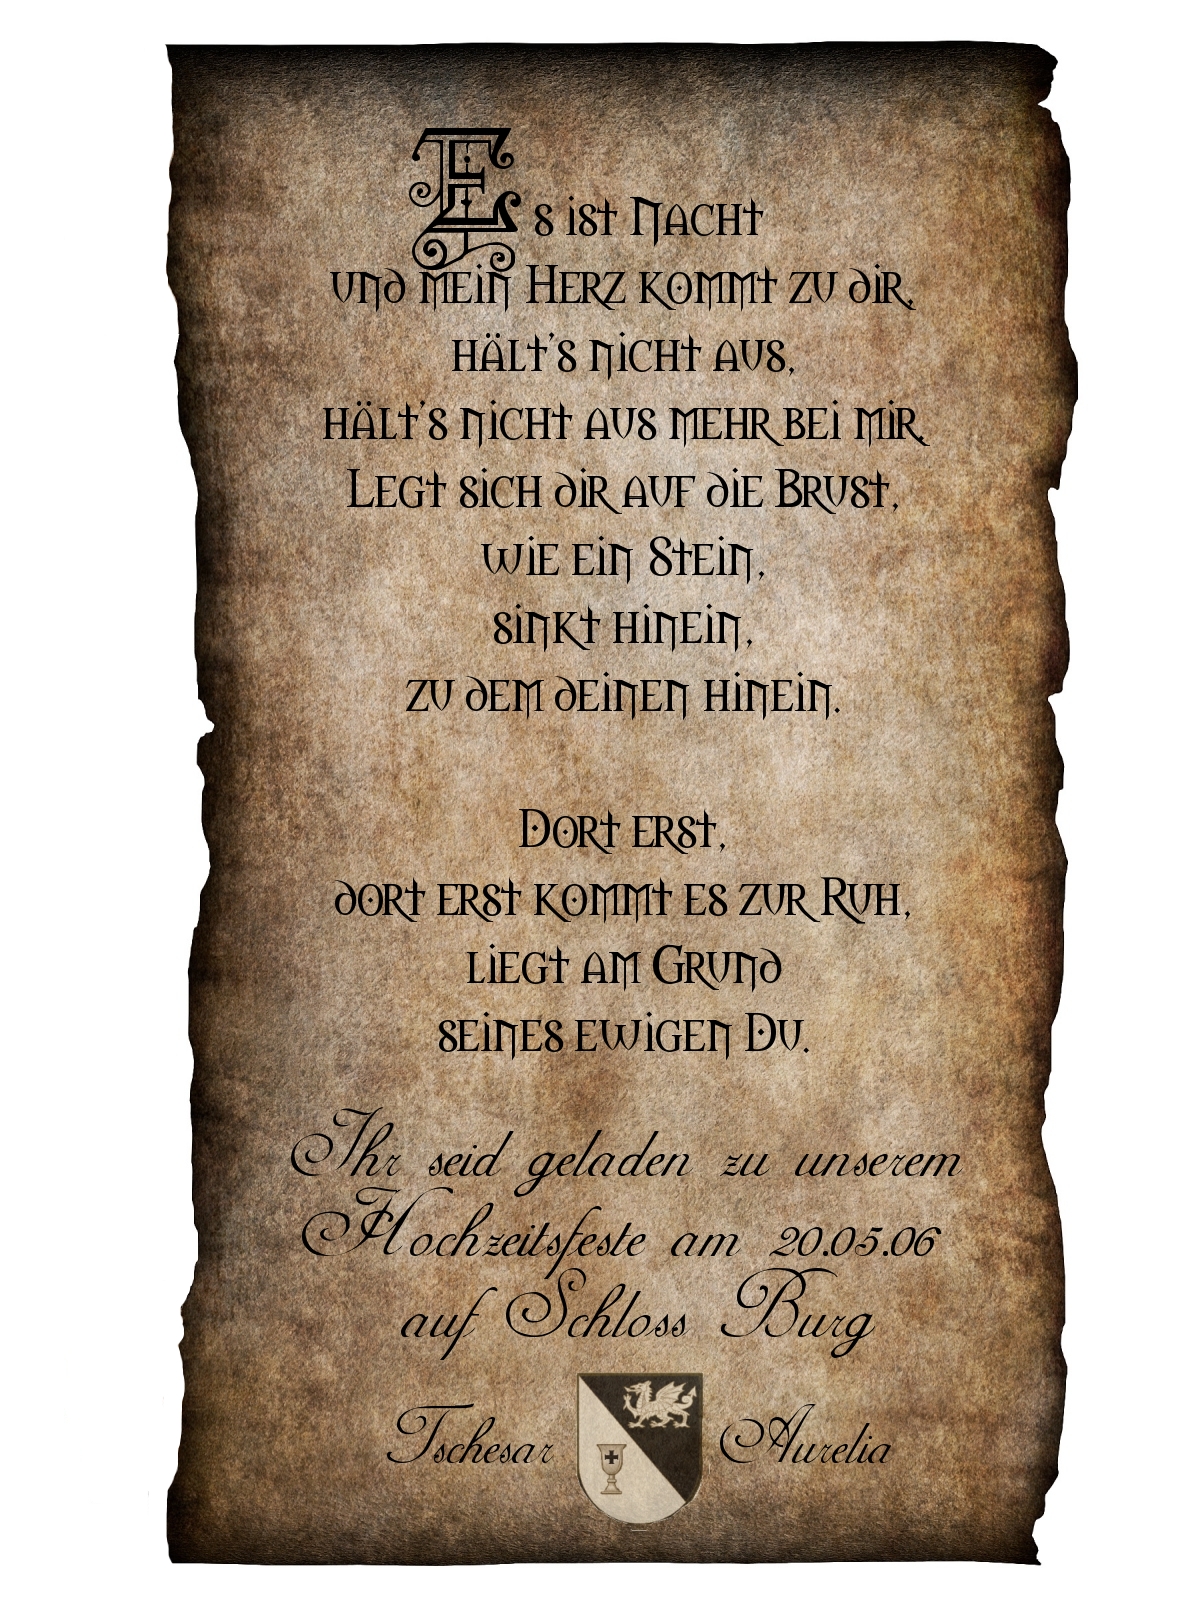 Es ist Nacht
und mein Herz kommt zu dir,
hält's nicht aus,
hält's nicht aus mehr bei mir.
Legt sich dir auf die Brust,
wie ein Stein,
sinkt hinein,
zu dem deinen hinein.
Dort erst,
dort erst kommt es zur Ruh,
liegt am Grund
seines ewigen Du.
Ihr seid geladen zu unserem
Hochzeitsfeste am 20.05.06
auf Schloss Burg
Tschesar Aurelia